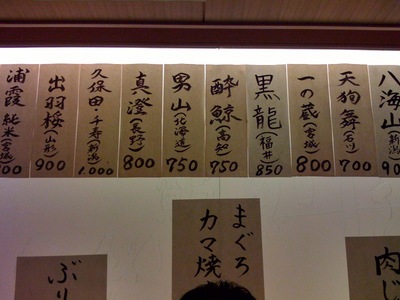 八海山(新潟)
天狗舞(石川)700
一の蔵(宮城)800
黒龍(福井)850
酔鯨(高知)750
男山(北海道)750
真澄(長野)800
久保田・千寿(新潟)1.000
出羽桜(山形)900
浦霞 純米(宮城)
まぐろ
カマ焼
肉じ
ぶり